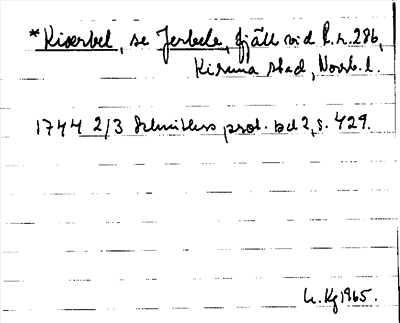 *Kiærbel, se Jerbele, fjäll vid R.r.286,
Kiruna stad, Norrb.l.
1744 2/3 Schnitlers prot. bd 2, s. 429.
Kg 1965.